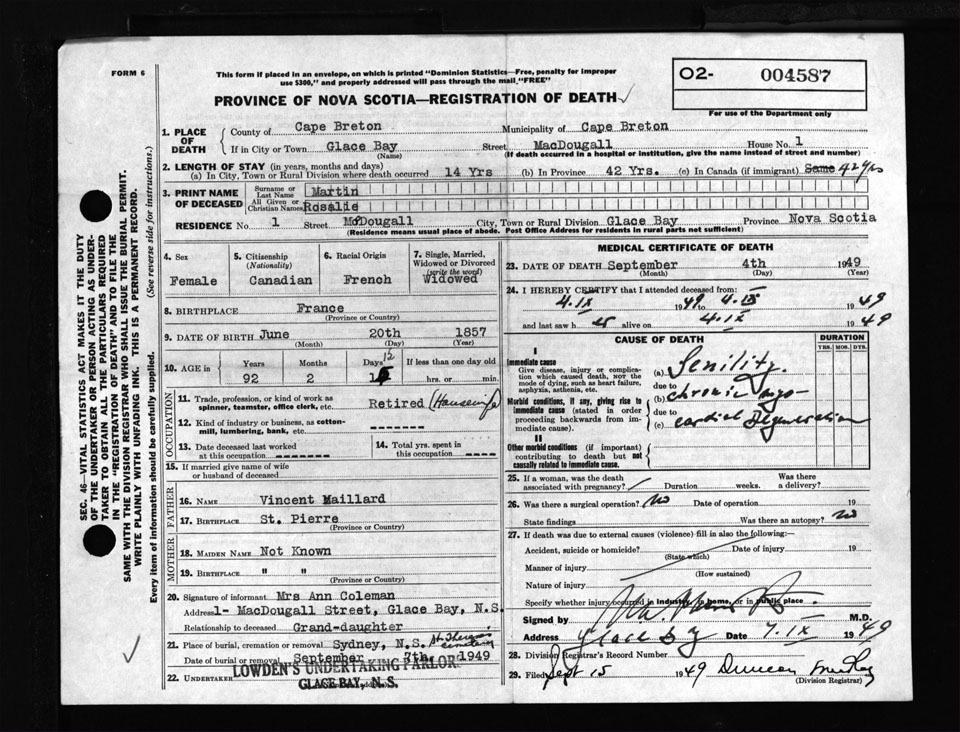 FORM 6
This form if placed in an envelope, on which is printed "Dominion Statistics—Free, penalty for improper
use $300," and properly addressed will pass through the mail "FREE"
O2- 004587
For use of the Department only
PROVINCE OF NOVA SCOTIA—REGISTRATION OF DEATH
1. PLACE OF DEATH
County of Cape Breton Municipality of Cape Breton
If in City or Town Glace Bay (Name) Street MacDougall House No. 1
(If death occurred in a hospital or institution, give the name instead of street and number)
2. LENGTH OF STAY (in years, months and days)
(a) In City, Town or Rural Division where death occurred 14 Yrs (b) In Province 42 Yrs. (c) In Canada (if immigrant) Same 42 yrs
3. PRINT NAME OF DECEASED
Surname or Last Name Martin
All Given or Christian Names Rosalie
RESIDENCE No. 1 Street McDougall City, Town or Rural Division Glace Bay Province Nova Scotia
(Residence means usual place of abode. Post Office Address for residents in rural parts not sufficient)
4. Sex
Female
5. Citizenship
(Nationality)
Canadian
6. Racial Origin
French
7. Single, Married,
Widowed or Divorced
(write the word)
Widowed
8. BIRTHPLACE France
(Province or Country)
9. DATE OF BIRTH June 20th 1857
(Month) (Day) (Year)
10. AGE in Years Months Days If less than one day old
92 2 12 hrs. or min.
OCCUPATION
11. Trade, profession, or kind of work as
spinner, teamster, office clerk, etc. Retired (Housewife
12. Kind of industry or business, as cotton-
mill, lumbering, bank, etc.
13. Date deceased last worked
at this occupation
14. Total yrs. spent in
this occupation
15. If married give name of wife
or husband of deceased
FATHER
16. NAME Vincent Maillard
17. BIRTHPLACE St. Pierre
(Province or Country)
MOTHER
18. MAIDEN NAME Not Known
19. BIRTHPLACE " "
(Province or Country)
20. Signature of informant Mrs Ann Coleman
Address 1- MacDougall Street, Glace Bay, N.S.
Relationship to deceased Grand-daughter
21. Place of burial, cremation or removal Sydney, N.S. cemetery
Date of burial or removal September 7th, 1949
22. UNDERTAKER LOWDEN'S UNDERTAKING PARLOR
GLACE BAY, N. S.
MEDICAL CERTIFICATE OF DEATH
23. DATE OF DEATH September 4th 1949
(Month) (Day) (Year)
24. I HEREBY CERTIFY that I attended deceased from
4.IX 1949 to 4.IX 1949
and last saw h er alive on 4.IX 1949
CAUSE OF DEATH
DURATION
YRS. MOS. DYS.
I
Immediate cause
Give disease, injury or complica-
tion which caused death, NOT the
mode of dying, such as heart failure,
asphyxia, asthenia, etc.
(a) Senility.
due to
Morbid conditions, if any, giving rise to
immediate cause (stated in order
proceeding backwards from im-
mediate cause).
(b) chronic myo-
due to
(c) cardial Degeneration
II
Other morbid conditions (if important)
contributing to death but not
causally related to immediate cause.
25. If a woman, was the death
associated with pregnancy? Duration weeks. Was there
a delivery?
26. Was there a surgical operation? No Date of operation 19
State findings Was there an autopsy? No
27. If death was due to external causes (violence) fill in also the following:—
Accident, suicide or homicide? Date of injury 19
(State which)
Manner of injury
(How sustained)
Nature of injury
Specify whether injury occurred in Industry, in home, or in public place
Signed by M.D.
Address Glace Bay Date 7.IX 1949
28. Division Registrar's Record Number
29. Filed Sept 15 1949 Duncan
(Division Registrar)
SEC. 46—VITAL STATISTICS ACT MAKES IT THE DUTY
OF THE UNDERTAKER OR PERSON ACTING AS UNDER-
TAKER TO OBTAIN ALL THE PARTICULARS REQUIRED
IN THE "REGISTRATION OF DEATH" AND TO FILE THE
SAME WITH THE DIVISION REGISTRAR WHO SHALL ISSUE THE BURIAL PERMIT.
WRITE PLAINLY WITH UNFADING INK. THIS IS A PERMANENT RECORD.
Every item of information should be carefully supplied. (See reverse side for instructions.)